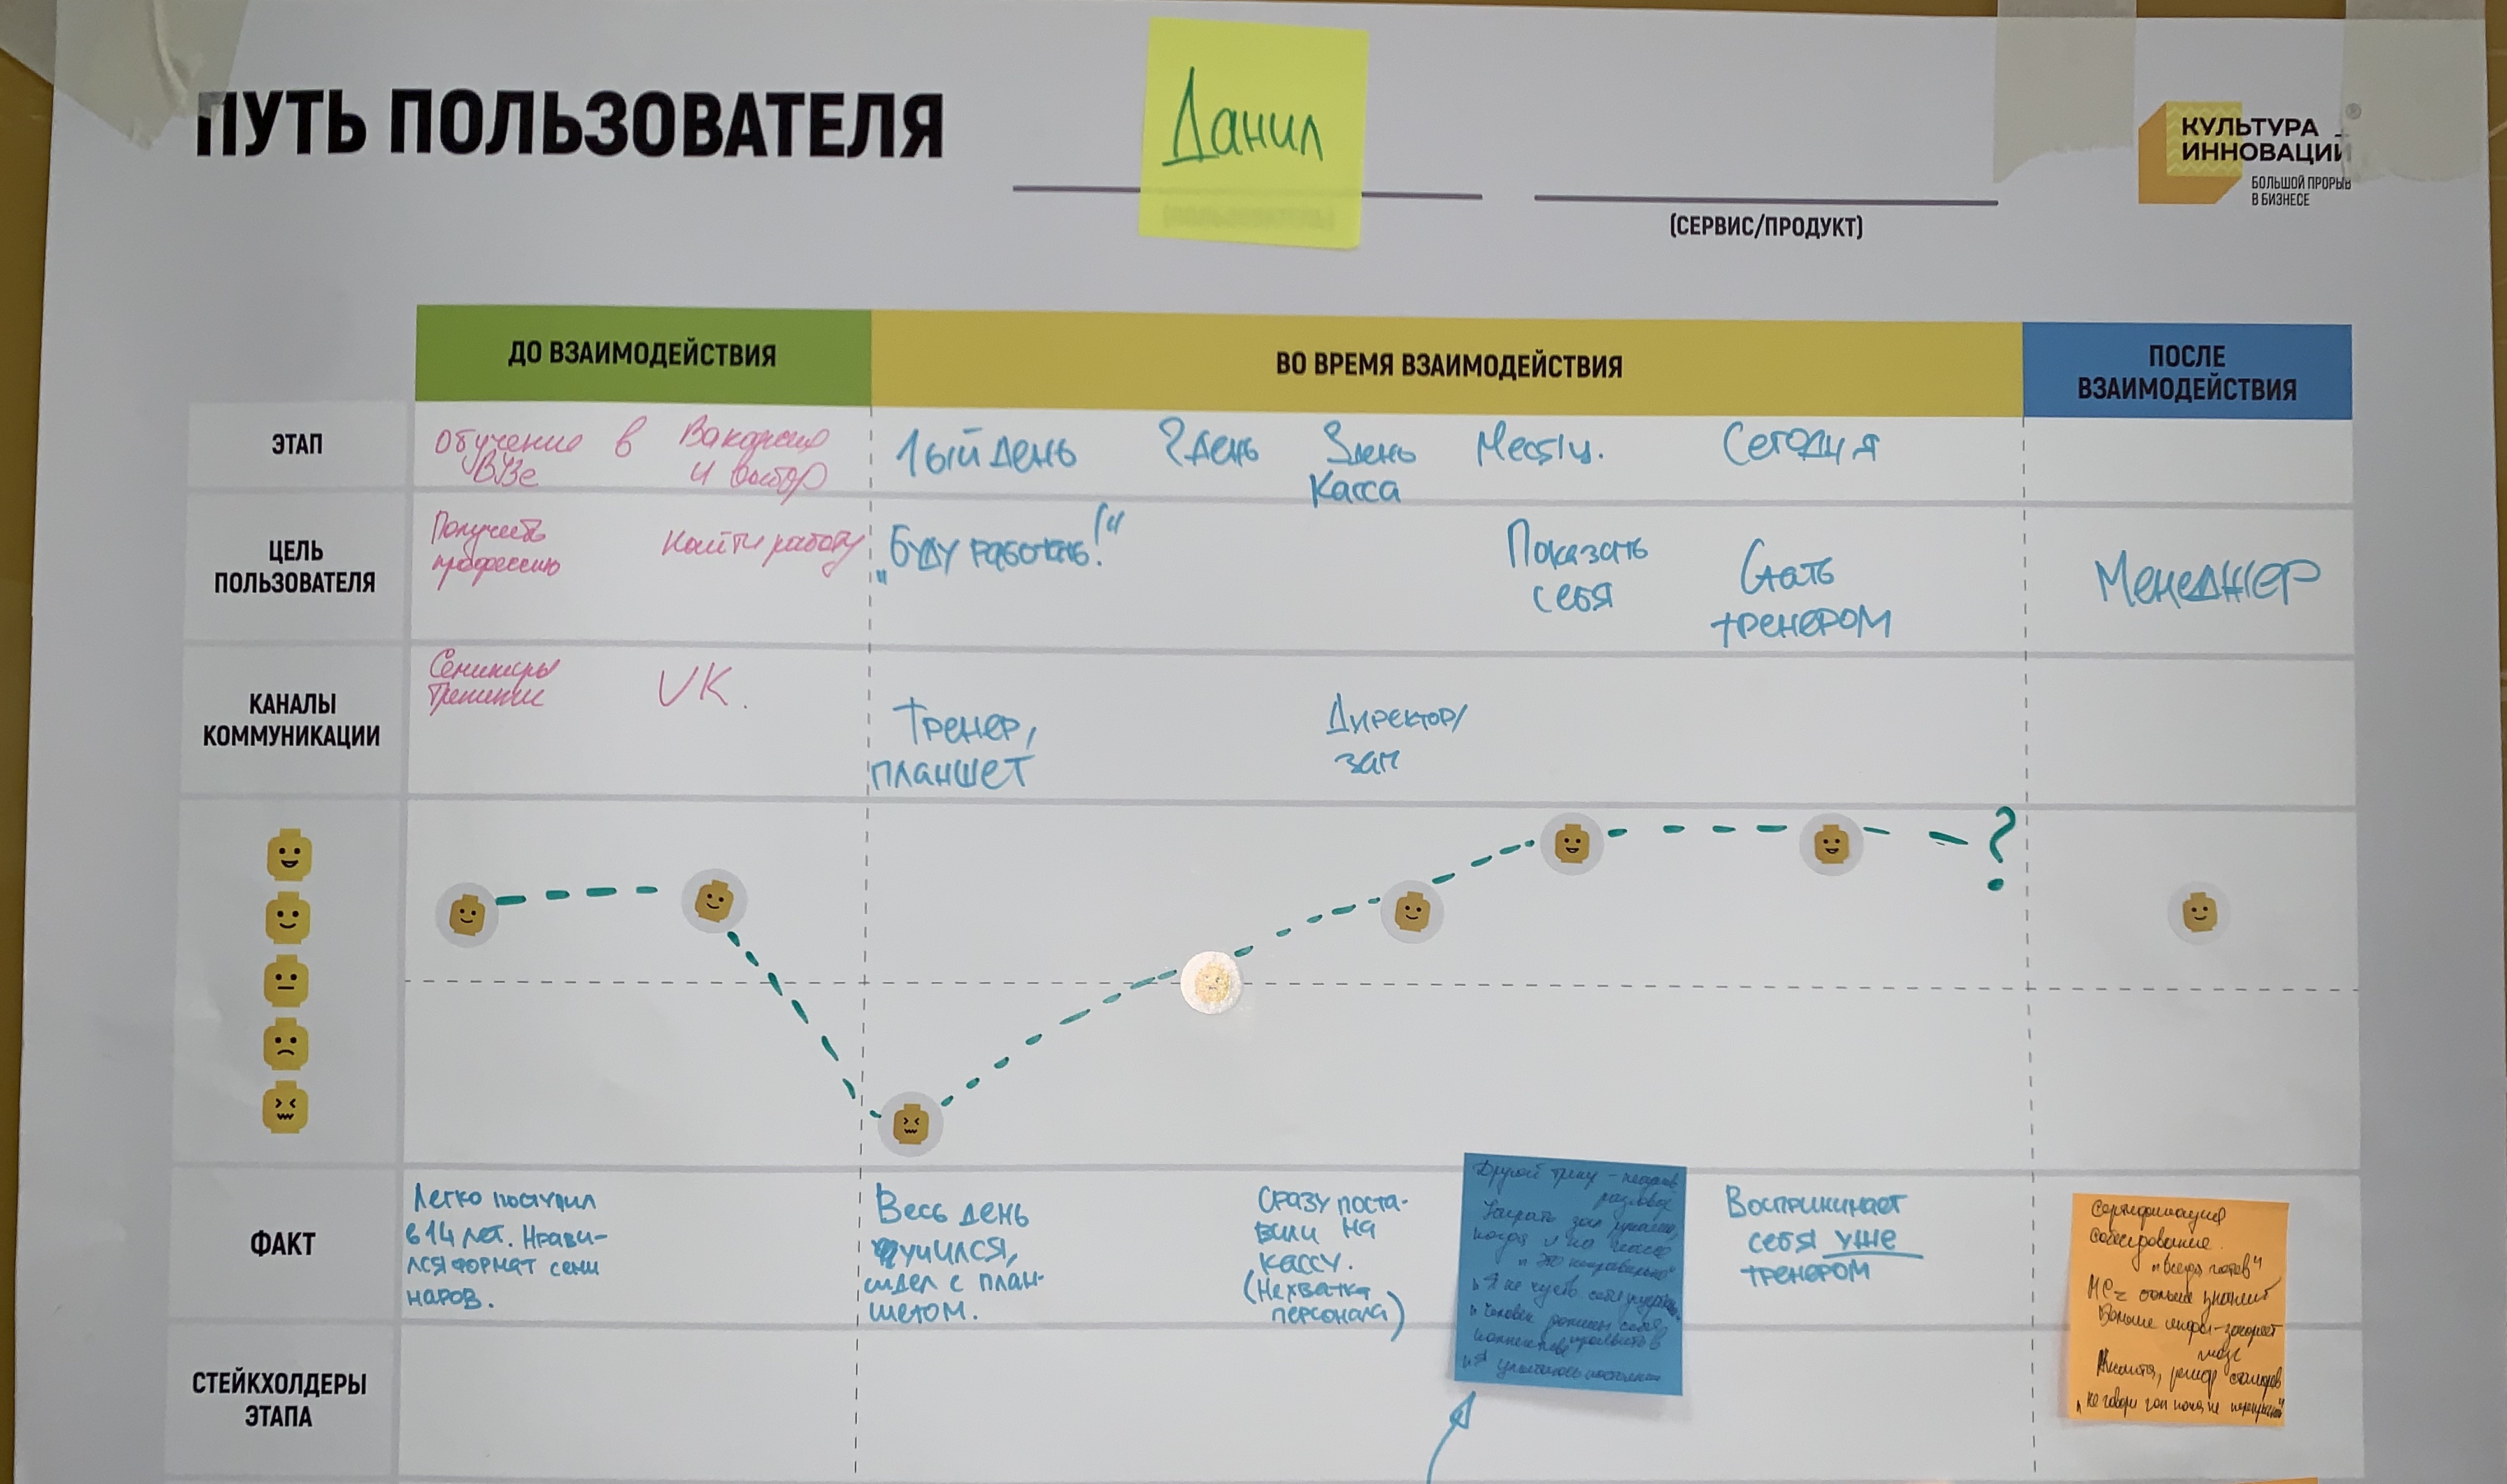 ПУТЬ ПОЛЬЗОВАТЕЛЯ
Данил
(СЕРВИС/ПРОДУКТ)
КУЛЬТУРА
ИННОВАЦИЙ
®
БОЛЬШОЙ ПРОРЫВ
В БИЗНЕСЕ
ДО ВЗАИМОДЕЙСТВИЯ
ВО ВРЕМЯ ВЗАИМОДЕЙСТВИЯ
ПОСЛЕ
ВЗАИМОДЕЙСТВИЯ
ЭТАП
Обучение в
ВУЗе
Вакансия
и выбор
1ый день
2 день
3 день
Касса
Месяц.
Сегодня
ЦЕЛЬ
ПОЛЬЗОВАТЕЛЯ
Получить
профессию
Найти работу
„Буду работать!“
Показать
себя
Стать
тренером
Менеджер
КАНАЛЫ
КОММУНИКАЦИИ
Семинары
Тренинги
VK.
Тренер,
планшет
Директор/
зам
?
ФАКТ
Легко поступил
в 14 лет. Нрави-
лся формат семи
наров.
Весь день
учился,
сидел с план-
шетом.
Сразу поста-
вили на
кассу.
(Нехватка
персонала)
Другой
когда я на кассе
„Я не
„Человек должен себя
коллективе
„Я
Воспринимает
себя уже
тренером
Сертификация
Собеседование.
„всегда готов“
МС = больше знаний
Больше инфы -
мозг
„не говори гоп пока не перепрыгнул“
СТЕЙКХОЛДЕРЫ
ЭТАПА